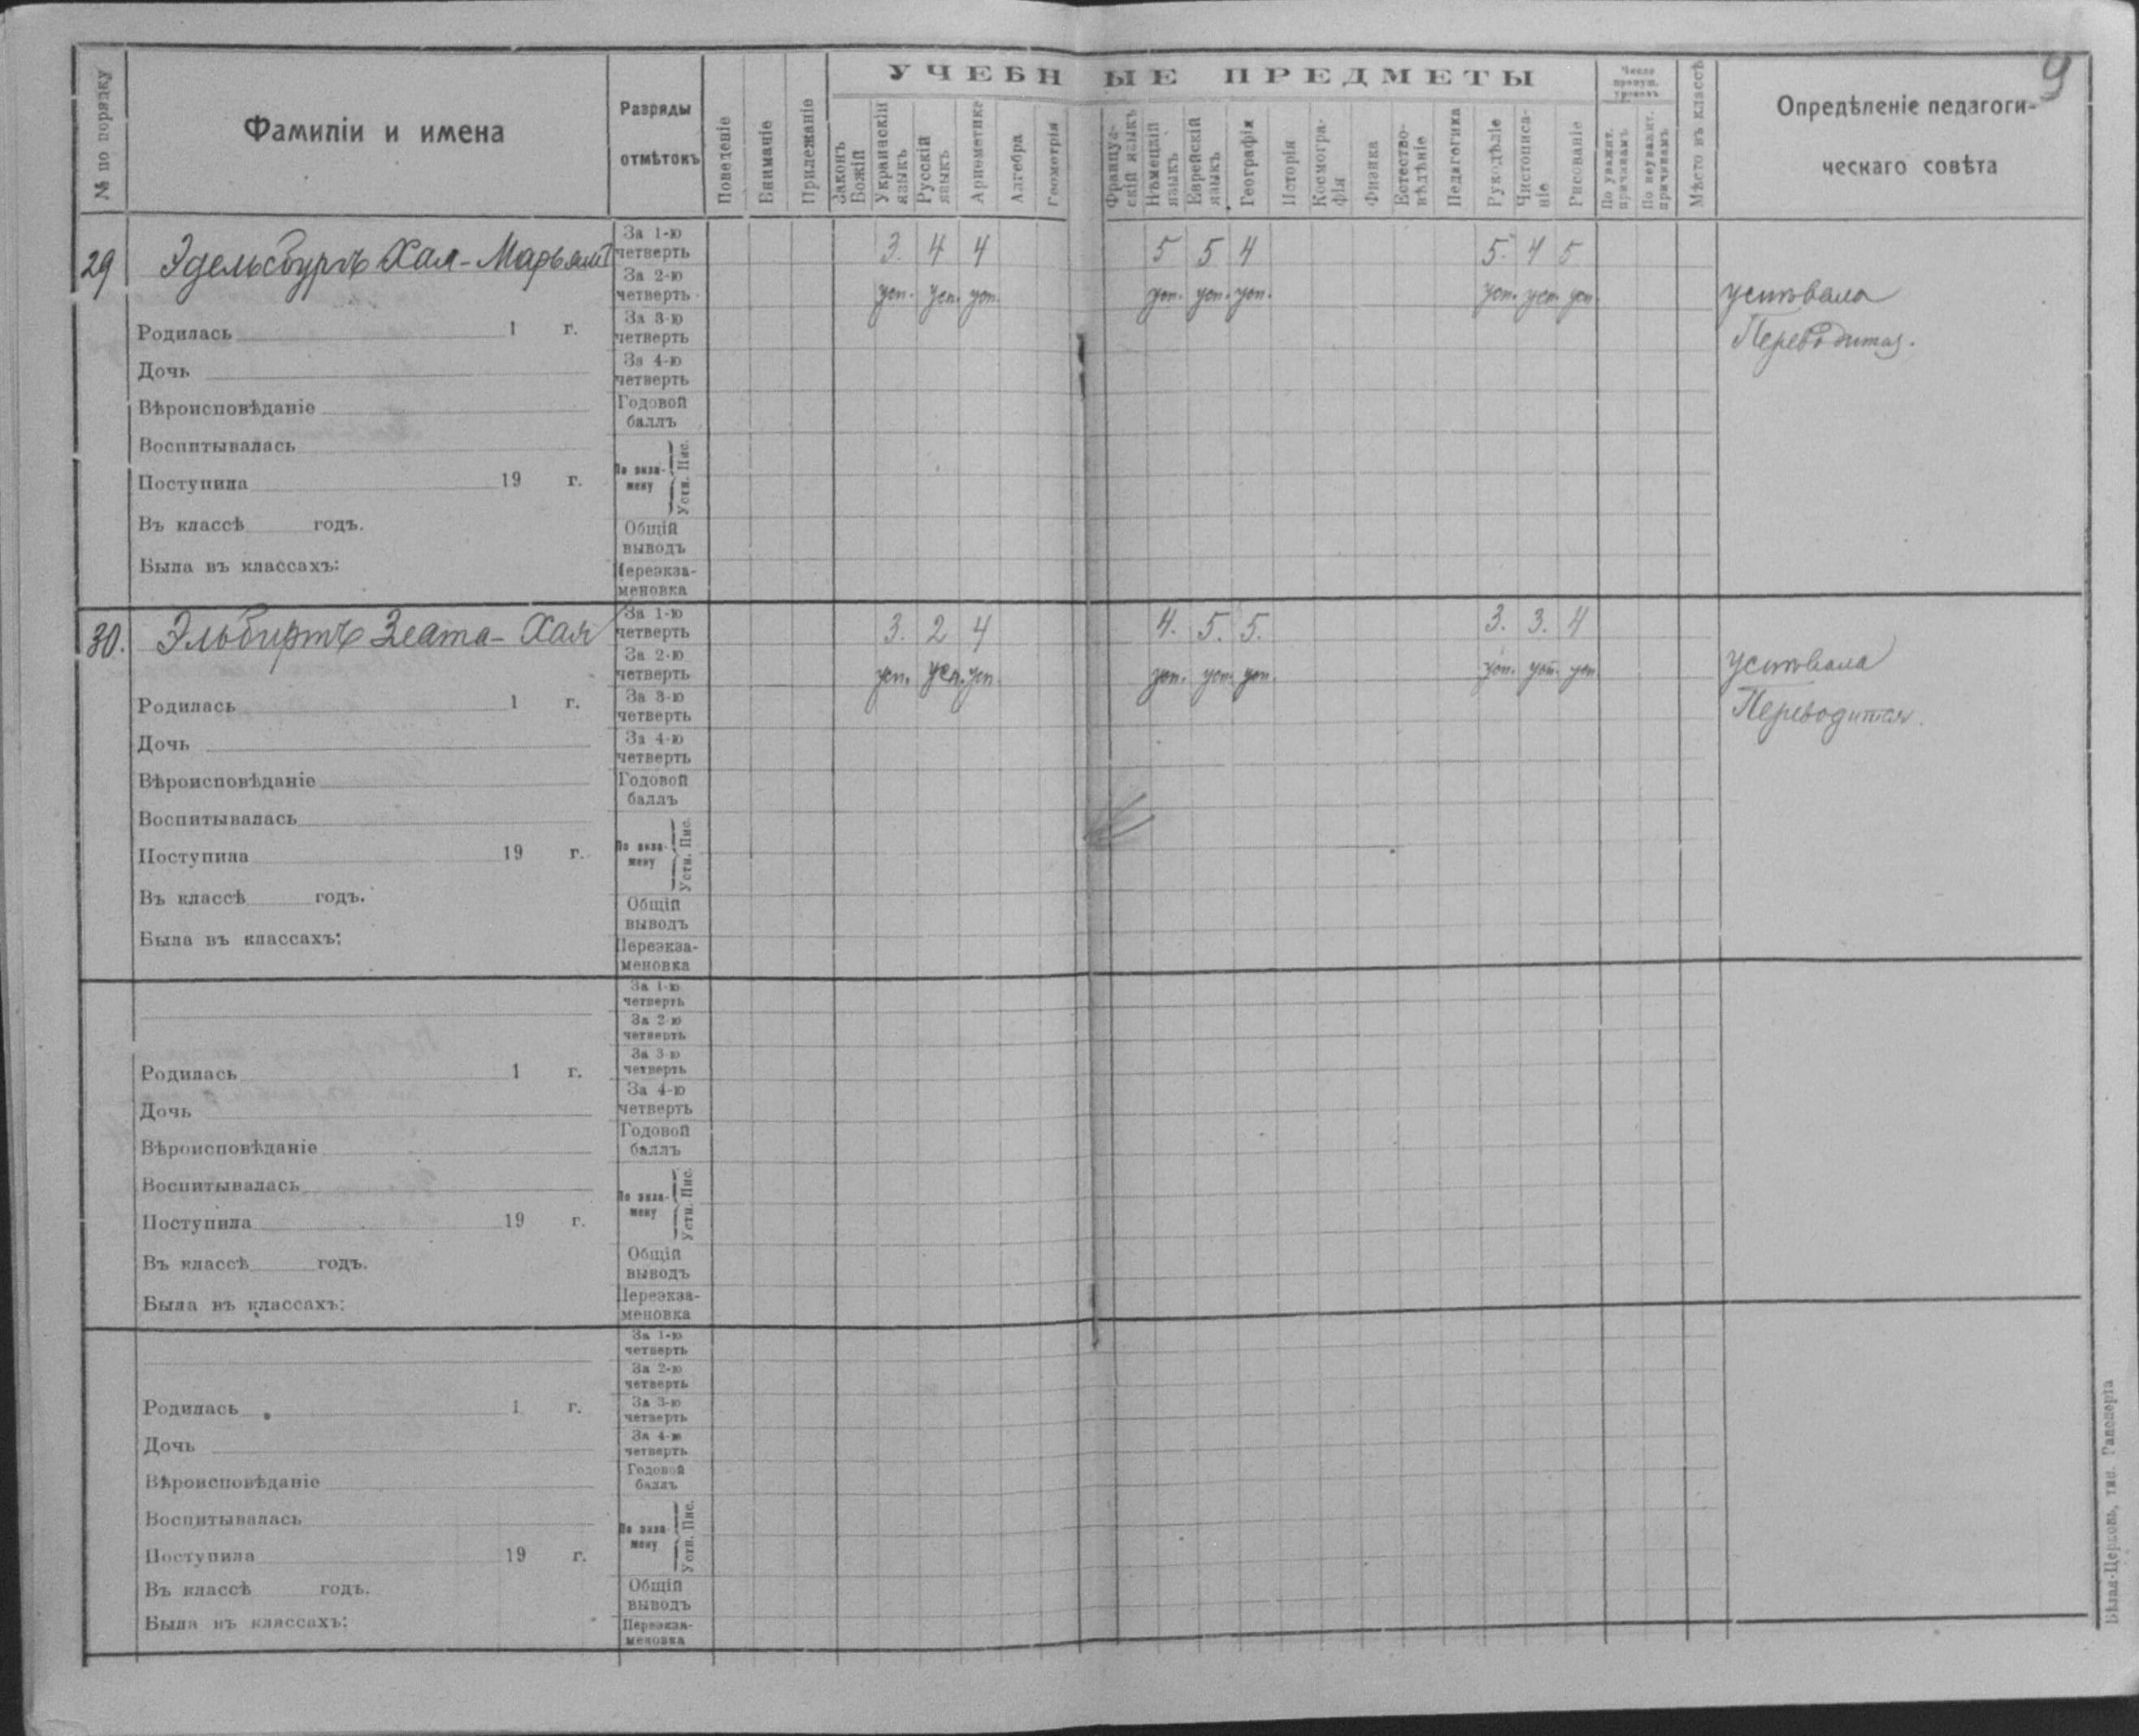 9
№ по порядку
Фамиліи и имена
Разряды отмѣтокъ
Поведеніе
Вниманіе
Прилежаніе
УЧЕБНЫЕ ПРЕДМЕТЫ
Законъ Божій
Украинскій языкъ
Русскій языкъ
Ариѳметика
Алгебра
Геометрія
Француз-скій языкъ
Нѣмецкій языкъ
Еврейскій языкъ
Географія
Исторія
Космогра-фія
Физика
Естество-вѣдѣніе
Педагогика
Рукодѣліе
Чистописа-ніе
Рисованіе
Число пропущ. уроковъ
По уважит. причинамъ
По неуважит. причинамъ
Мѣсто въ классѣ
Опредѣленіе педагоги-
ческаго совѣта
29 Эдельсбургъ Хая-Марьям
За 1-ю четверть 3. 4 4 5 5 4 5. 4 5
За 2-ю четверть усп. усп. усп. усп. усп. усп. усп. усп. усп.
успѣвала
Переводится.
За 3-ю четверть
Родилась 1 г.
За 4-ю четверть
Дочь
Годовой баллъ
Вѣроисповѣданіе
Воспитывалась
По экза-мену Устн. Пис.
Поступила 19 г.
Въ классѣ годъ.
Общій выводъ
Была въ классахъ:
Переэкза-меновка
30. Эльбиртъ Злата-Хая
За 1-ю четверть 3. 2 4 4. 5. 5. 3. 3. 4
За 2-ю четверть усп. усп. усп. усп. усп. усп. усп. усп. усп.
успѣвала
Переводится.
За 3-ю четверть
Родилась 1 г.
За 4-ю четверть
Дочь
Годовой баллъ
Вѣроисповѣданіе
Воспитывалась
По экза-мену Устн. Пис.
Поступила 19 г.
Въ классѣ годъ.
Общій выводъ
Была въ классахъ:
Переэкза-меновка
За 1-ю четверть
За 2-ю четверть
За 3-ю четверть
Родилась 1 г.
За 4-ю четверть
Дочь
Годовой баллъ
Вѣроисповѣданіе
Воспитывалась
По экза-мену Устн. Пис.
Поступила 19 г.
Въ классѣ годъ.
Общій выводъ
Была въ классахъ:
Переэкза-меновка
За 1-ю четверть
За 2-ю четверть
За 3-ю четверть
Родилась 1 г.
За 4-ю четверть
Дочь
Годовой баллъ
Вѣроисповѣданіе
Воспитывалась
По экза-мену Устн. Пис.
Поступила 19 г.
Въ классѣ годъ.
Общій выводъ
Была въ классахъ:
Переэкза-меновка
Бѣлая-Церковь, тип. Гапоперта